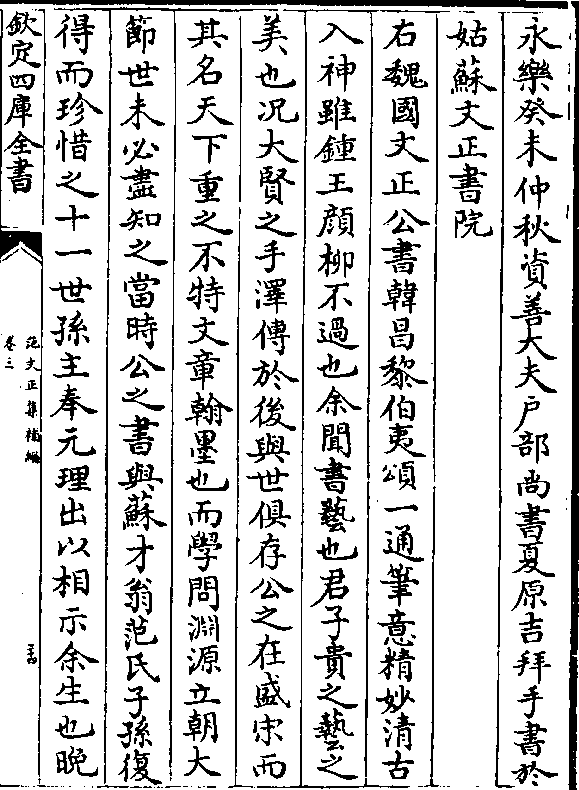 永樂癸未仲秋資善大夫戶部尚書夏原吉拜手書於
姑蘇文正書院
右魏國文正公書韓昌黎伯夷頌一通筆意精妙清古
入神雖鍾王顔柳不過也余聞書藝也君子貴之藝之
美也况大賢之手澤傳於後與世俱存公之在盛宋而
其名天下重之不特文章翰墨也而學問淵源立朝大
節世未必盡知之當時公之書與蘇才翁范氏子孫復
得而珍惜之十一世孫主奉元理出以相示余生也晩
欽定四庫全書
范文正集補編
卷三